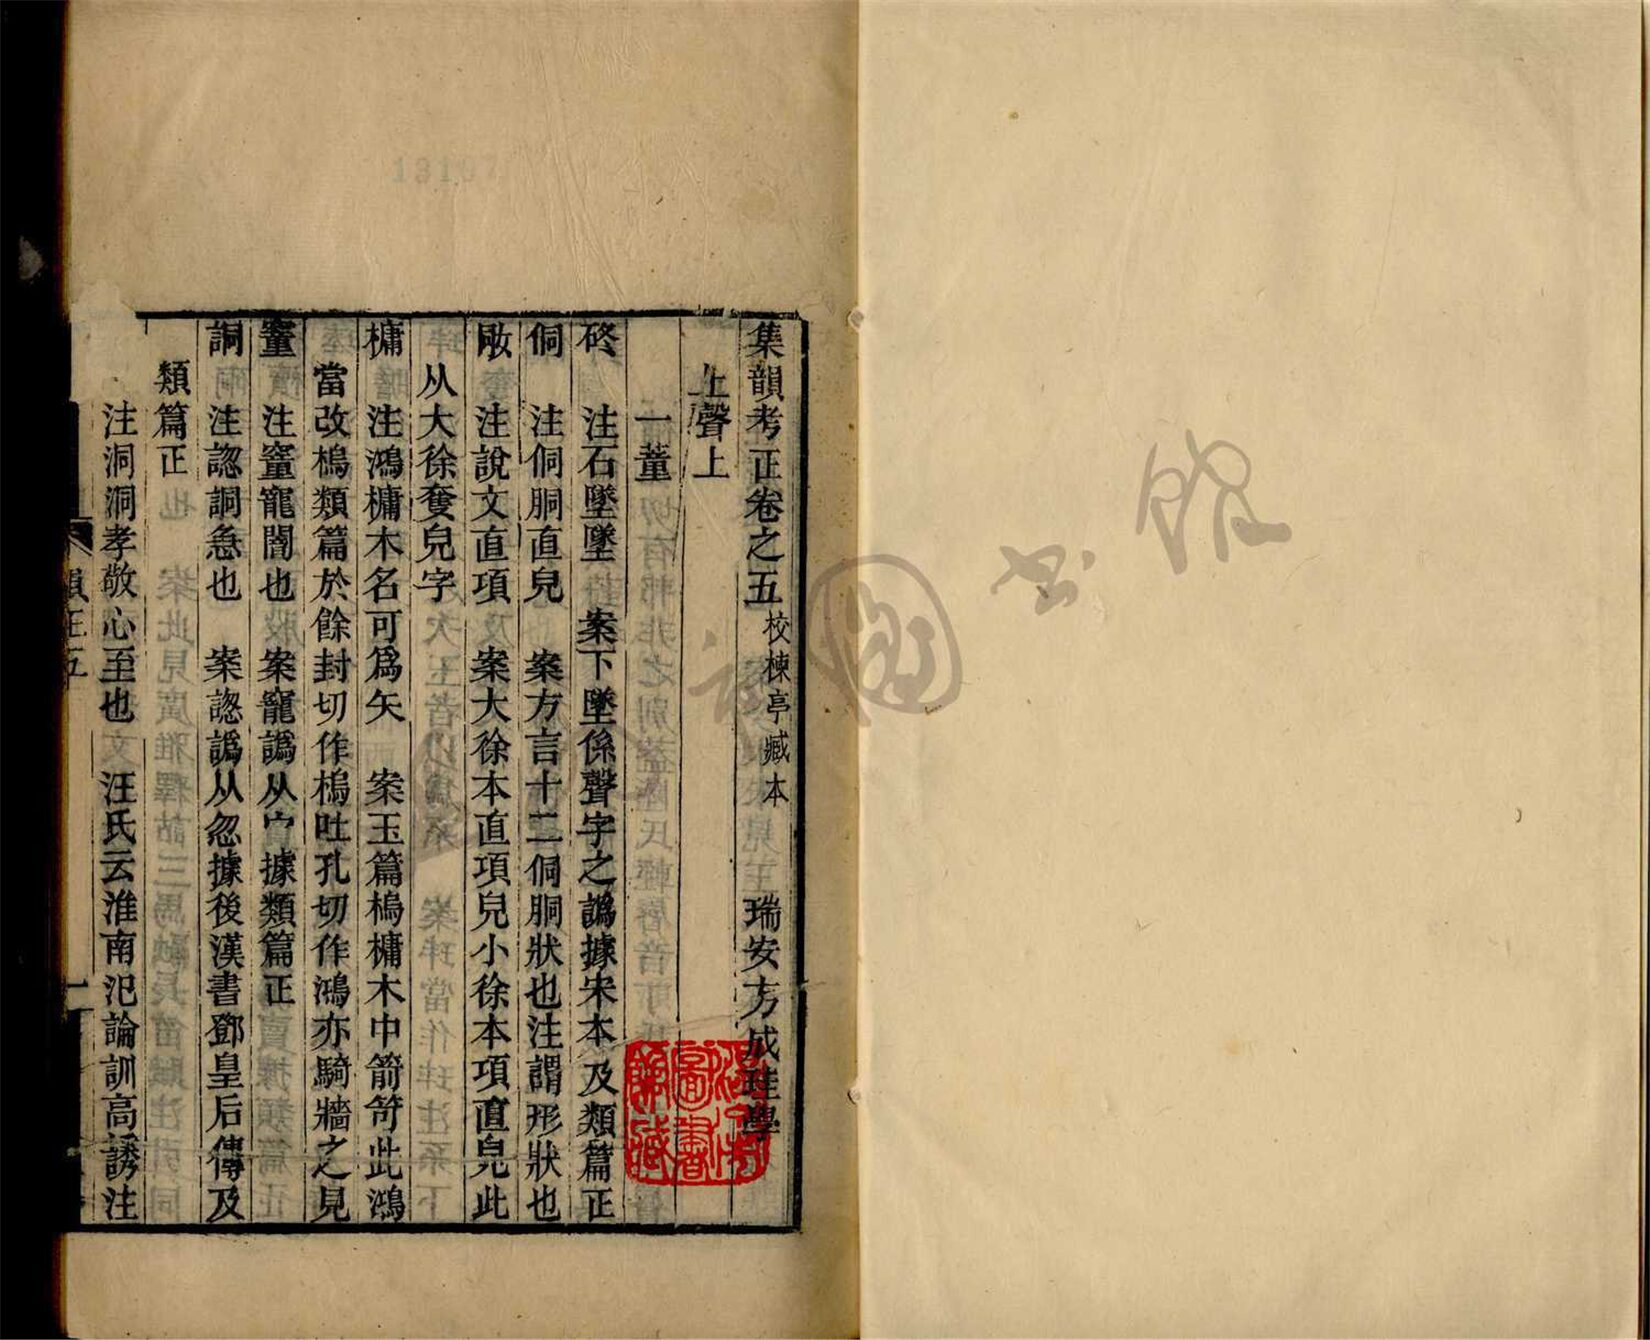 集韻考正卷之五 校楝亭臧本 瑞安方成珪學
上聲上
一董
硿 注石墜墜 案下墜係聲字之譌據宋本及類篇正
侗 注侗胴直皃 案方言十二侗胴狀也注謂形狀也
注說文直項 案大徐本直項皃小徐本項直皃此
从大徐奪皃字
槦 注鴻槦木名可爲矢 案玉篇槝槦木中箭笴此鴻
當改槝類篇於餘封切作槝吐孔切作鴻亦騎牆之見
注竉闇也 案竉譌从宀據類篇正
詷 注認詷急也 案認譌从忽據後漢書鄧皇后傳及
類篇正
注洞洞孝敬心至也 汪氏云淮南氾論訓高誘注
韻正五
一
國
書
館